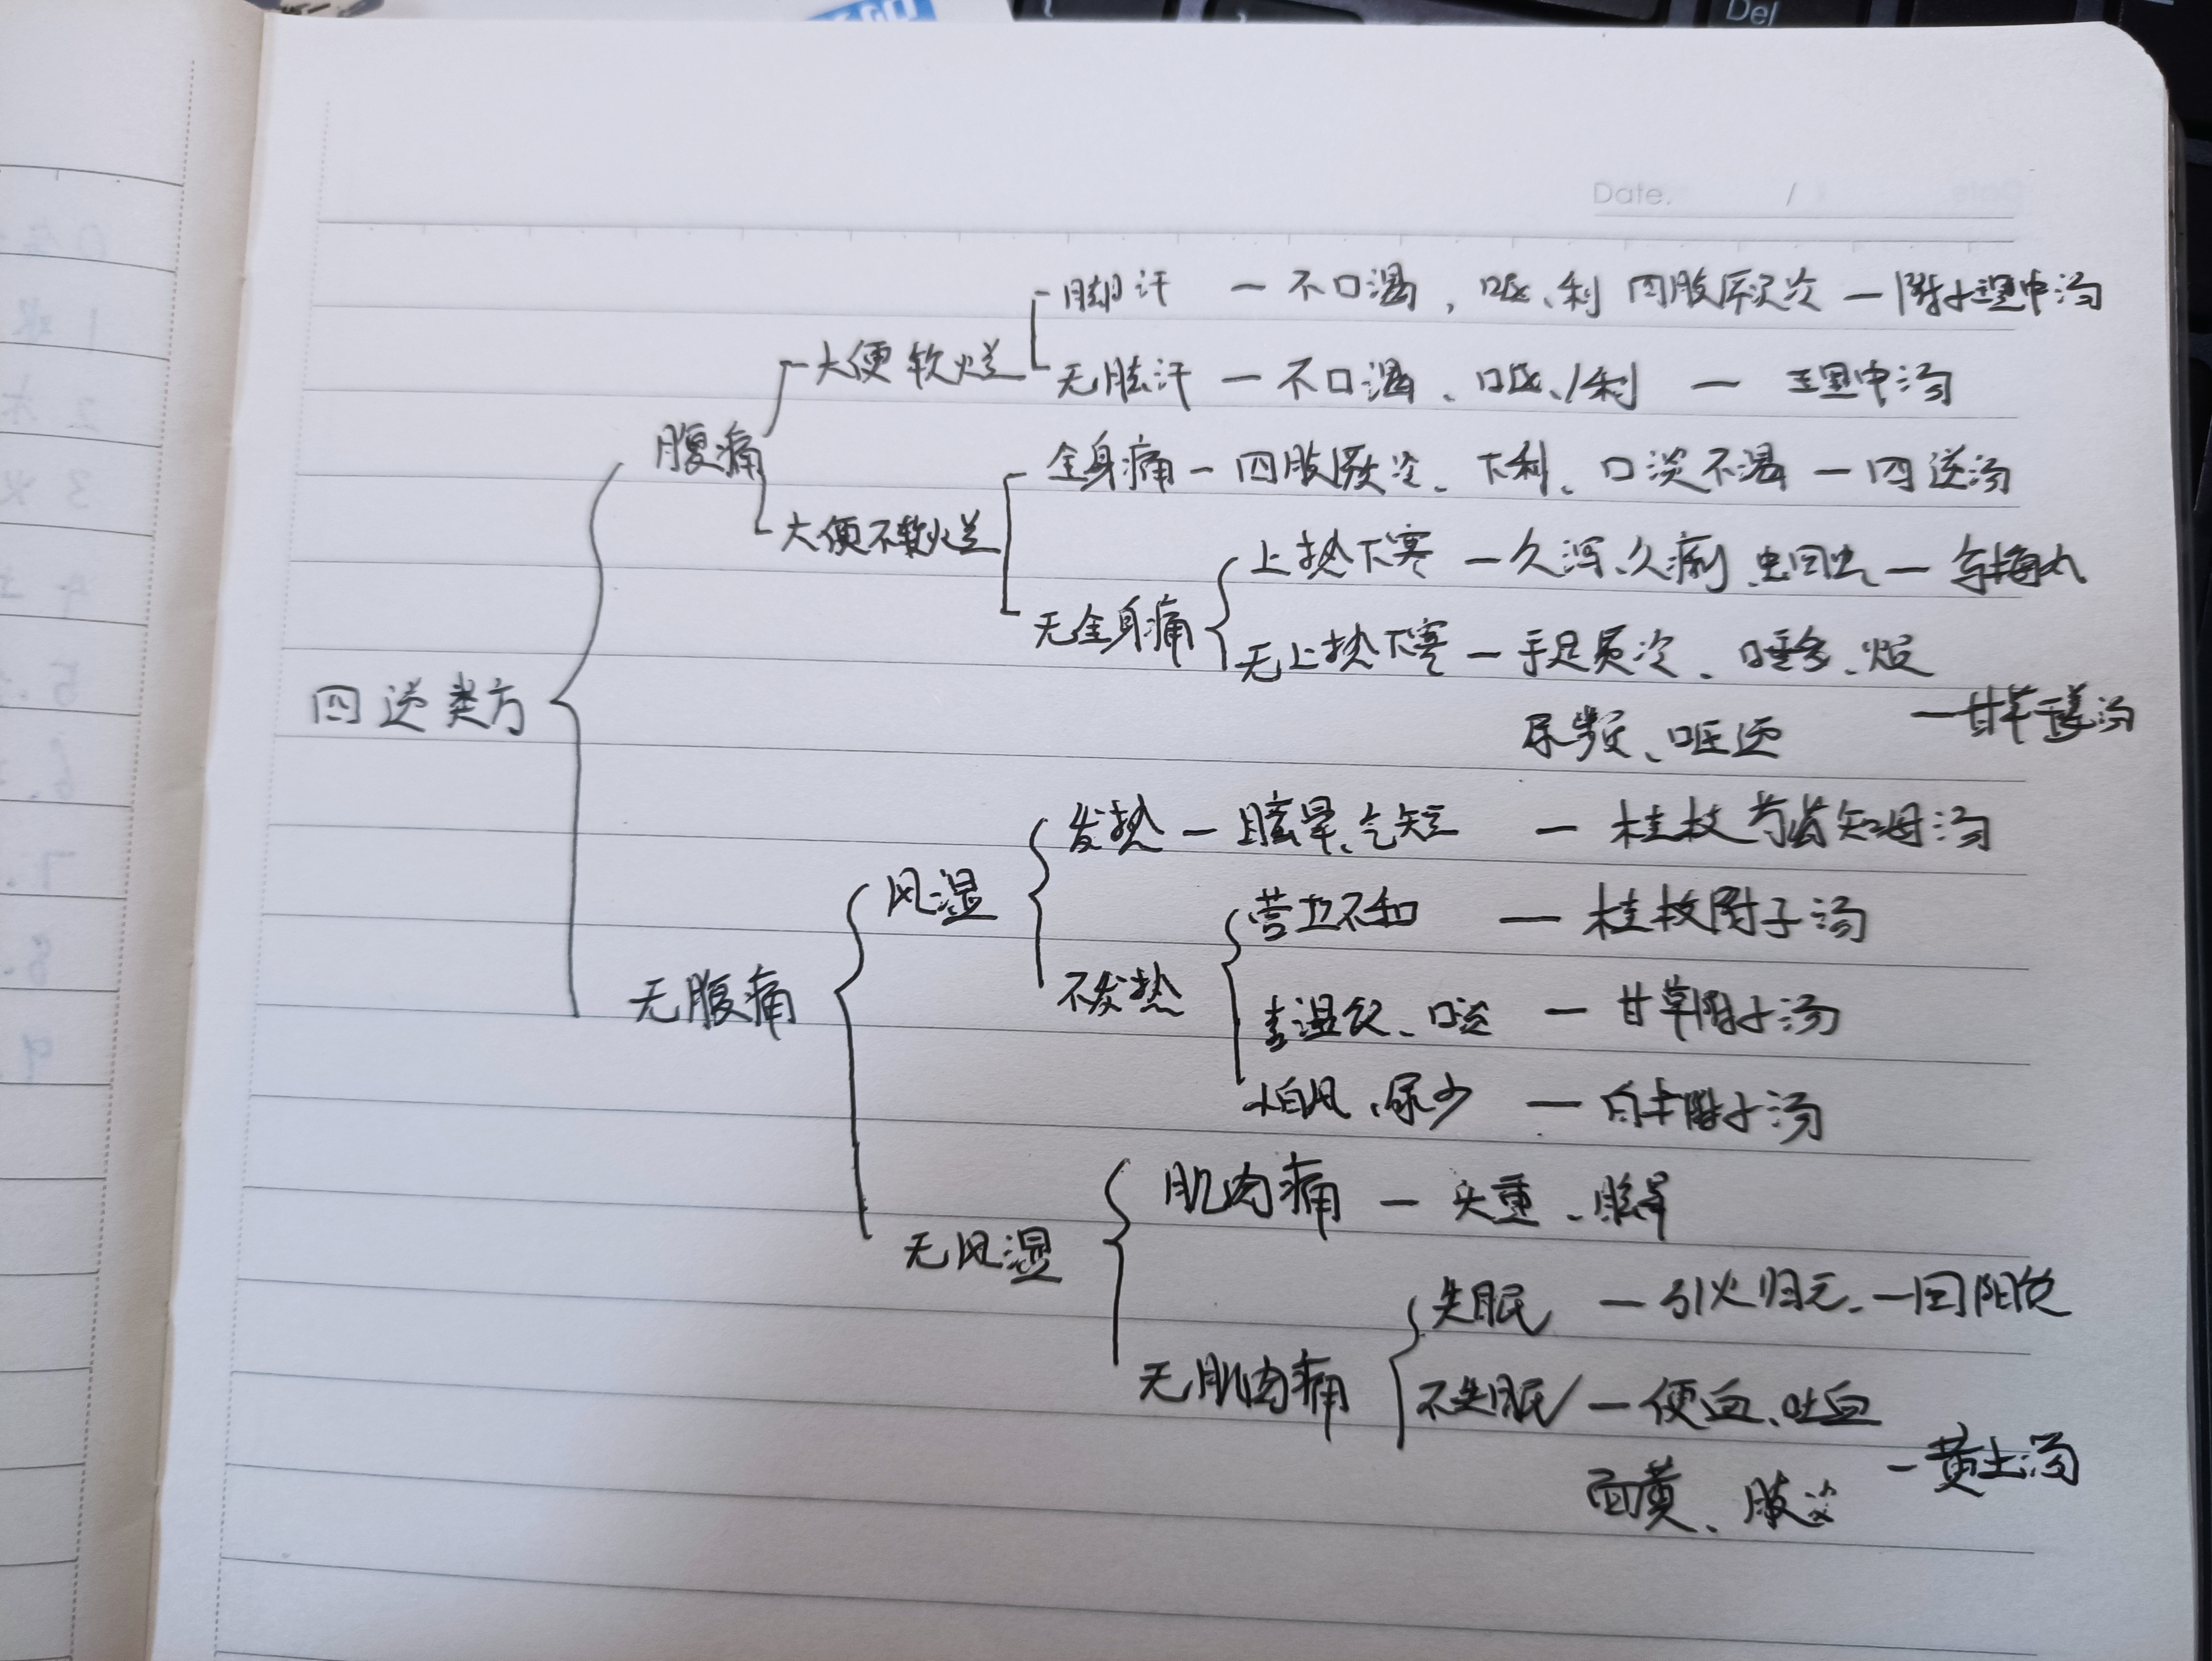 Del
Date. /
脚汗 — 不口渴, 呕、利 四肢厥冷 — 附子理中汤
大便软烂
无脚汗 — 不口渴、呕、利 — 理中汤
腹痛
全身痛 — 四肢厥冷、下利、口淡不渴 — 四逆汤
大便不软烂
上热下寒 — 久泻、久痢 蛔虫 — 乌梅丸
无全身痛
无上热下寒 — 手足厥冷、唾多、烦
四逆类方
尿频、呕逆 — 甘草干姜汤
发热 — 眩晕、气短 — 桂枝芍药知母汤
风湿
营卫不和 — 桂枝附子汤
不发热
无腹痛
湿饮、口淡 — 甘草附子汤
怕风、尿少 — 白术附子汤
肌肉痛 — 头重、眩晕
无风湿
失眠 — 引火归元 — 回阳饮
无肌肉痛
不失眠 — 便血、吐血
面黄、肢冷 — 黄土汤